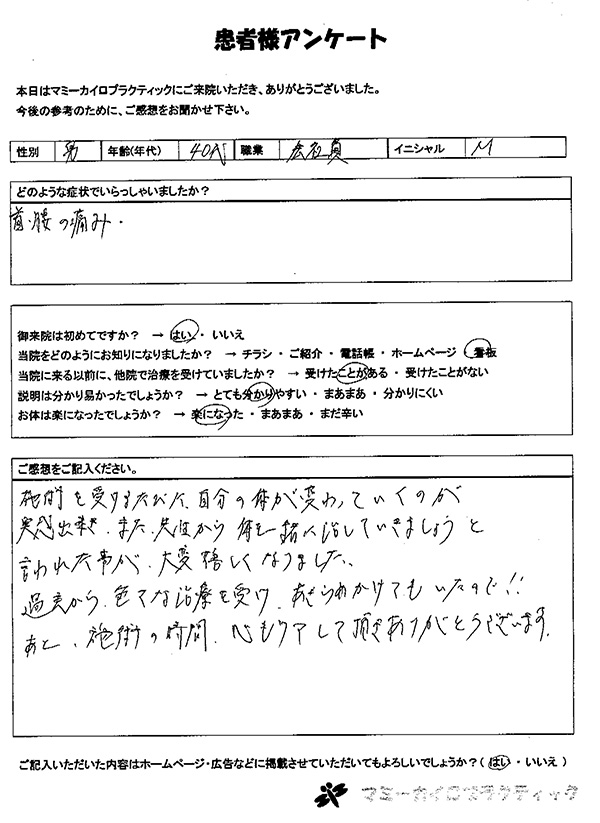 患者様アンケート
本日はマミーカイロプラクティックにご来院いただき、ありがとうございました。
今後の参考のために、ご感想をお聞かせ下さい。
性別 男 年齢(年代) 40代 職業 会社員 イニシャル M
どのような症状でいらっしゃいましたか?
首・腰の痛み・
御来院は初めてですか? → はい ・ いいえ
当院をどのようにお知りになりましたか? → チラシ ・ ご紹介 ・ 電話帳 ・ ホームページ ・ 看板
当院に来る以前に、他院で治療を受けていましたか? → 受けたことがある ・ 受けたことがない
説明は分かり易かったでしょうか? → とても分かりやすい ・ まあまあ ・ 分かりにくい
お体は楽になったでしょうか? → 楽になった ・ まあまあ ・ まだ辛い
ご感想をご記入ください。
施術を受けるたびに、自分の体が変わっていくのが
実感出来き、また、先生から 体を一緒に治していきましょう と
言われた事が、大変嬉しくなりました。
過去から、色々な治療を受け、あきらめかけてもいたので!!
あと、施術の時間、心もケアして頂きありがとうございます。
ご記入いただいた内容はホームページ・広告などに掲載させていただいてもよろしいでしょうか?( はい ・ いいえ )
マミーカイロプラクティック